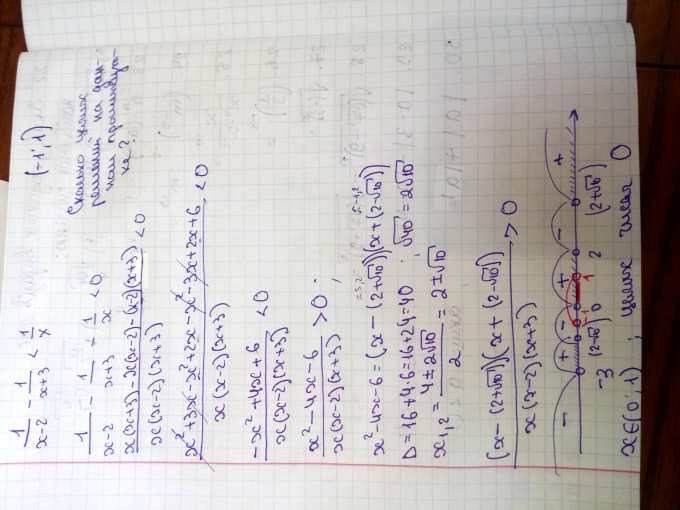 1/(x-2) - 1/(x+3) < 1/x (-1; 1)
Сколько целых
решений на дан-
ном промежут-
ке?
1/(x-2) - 1/(x+3) + 1/x < 0
(x(x+3) - x(x-2) - (x-2)(x+3))/(x(x-2)(x+3)) < 0
(x² + 3x - x² + 2x - x² - 3x + 2x + 6)/(x(x-2)(x+3)) < 0
(-x² + 4x + 6)/(x(x-2)(x+3)) < 0
(x² - 4x - 6)/(x(x-2)(x+3)) > 0
x² - 4x - 6 = (x - (2+√10))(x + (2-√10))
D = 16 + 4·6 = 16 + 24 = 40 ; √40 = 2√10
x₁,₂ = (4 ± 2√10)/2 = 2 ± √10
((x - (2+√10))(x + (2-√10)))/(x(x-2)(x+3)) > 0
- + - + - +
-3 (2-√10) -1 0 1 2 (2+√10)
x∈(0; 1) ; целых чисел 0